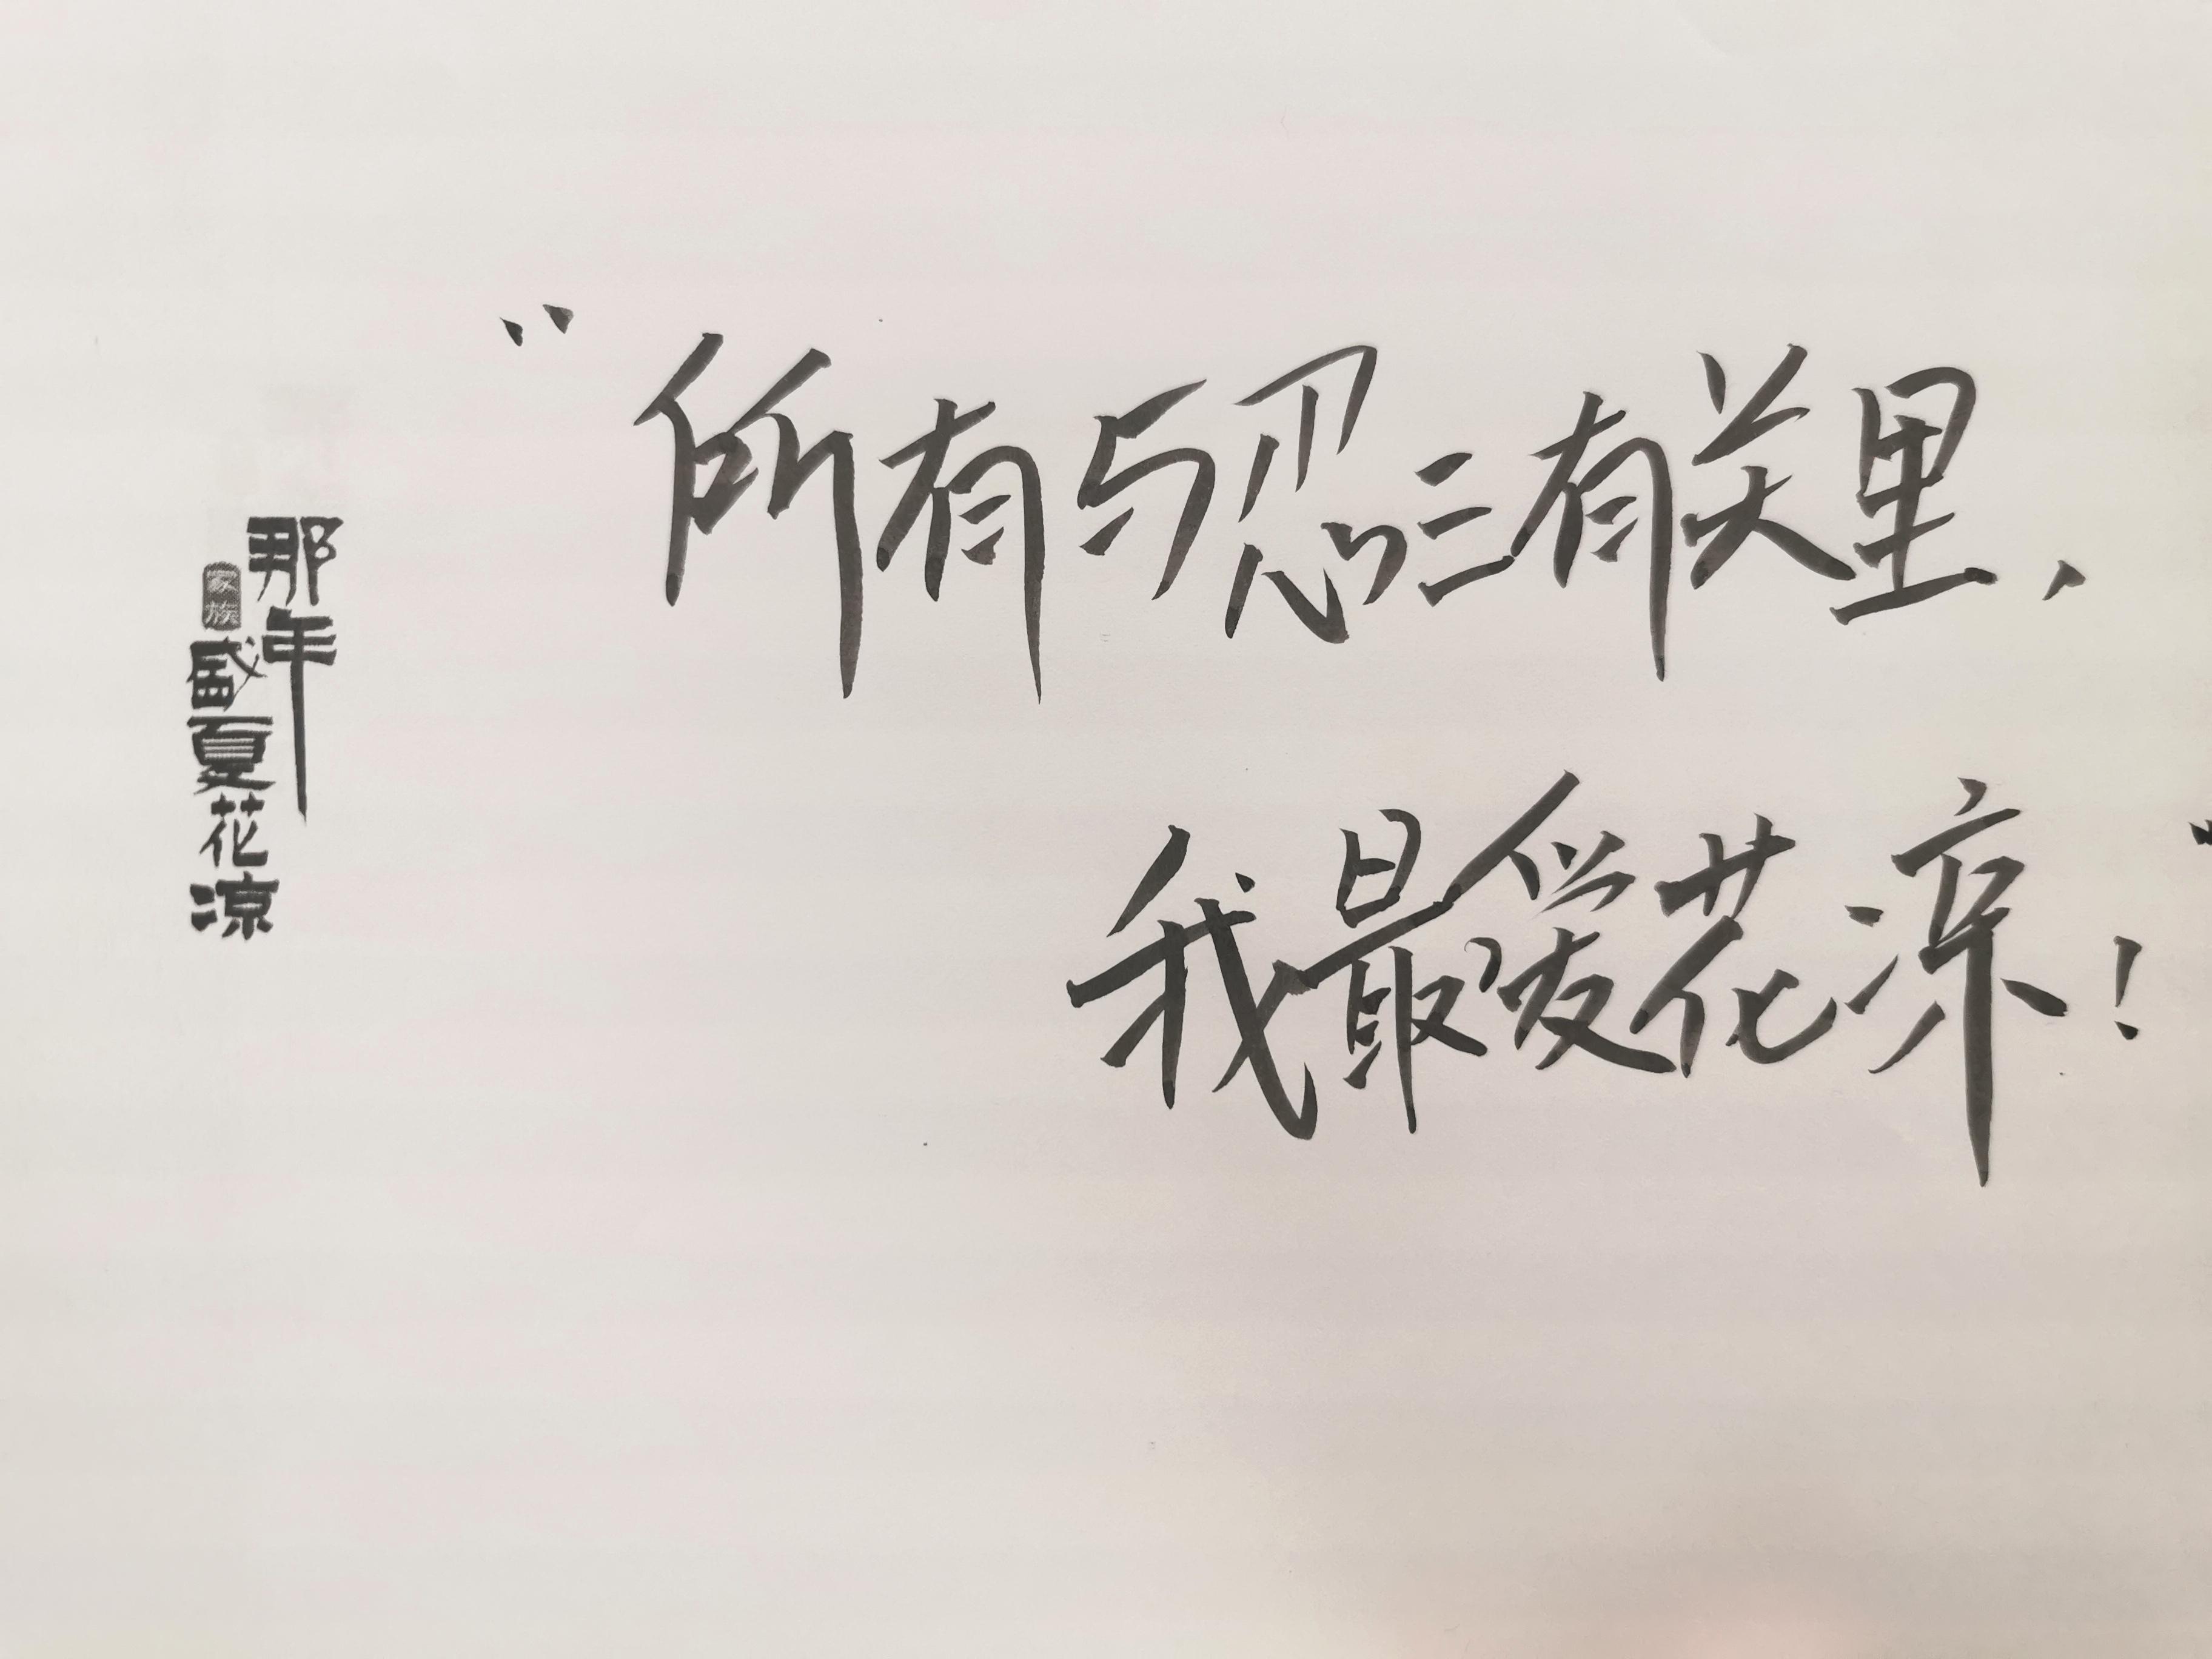 那年
家族
盛夏花凉
“所有与忍三有关里，
我最爱花凉！”